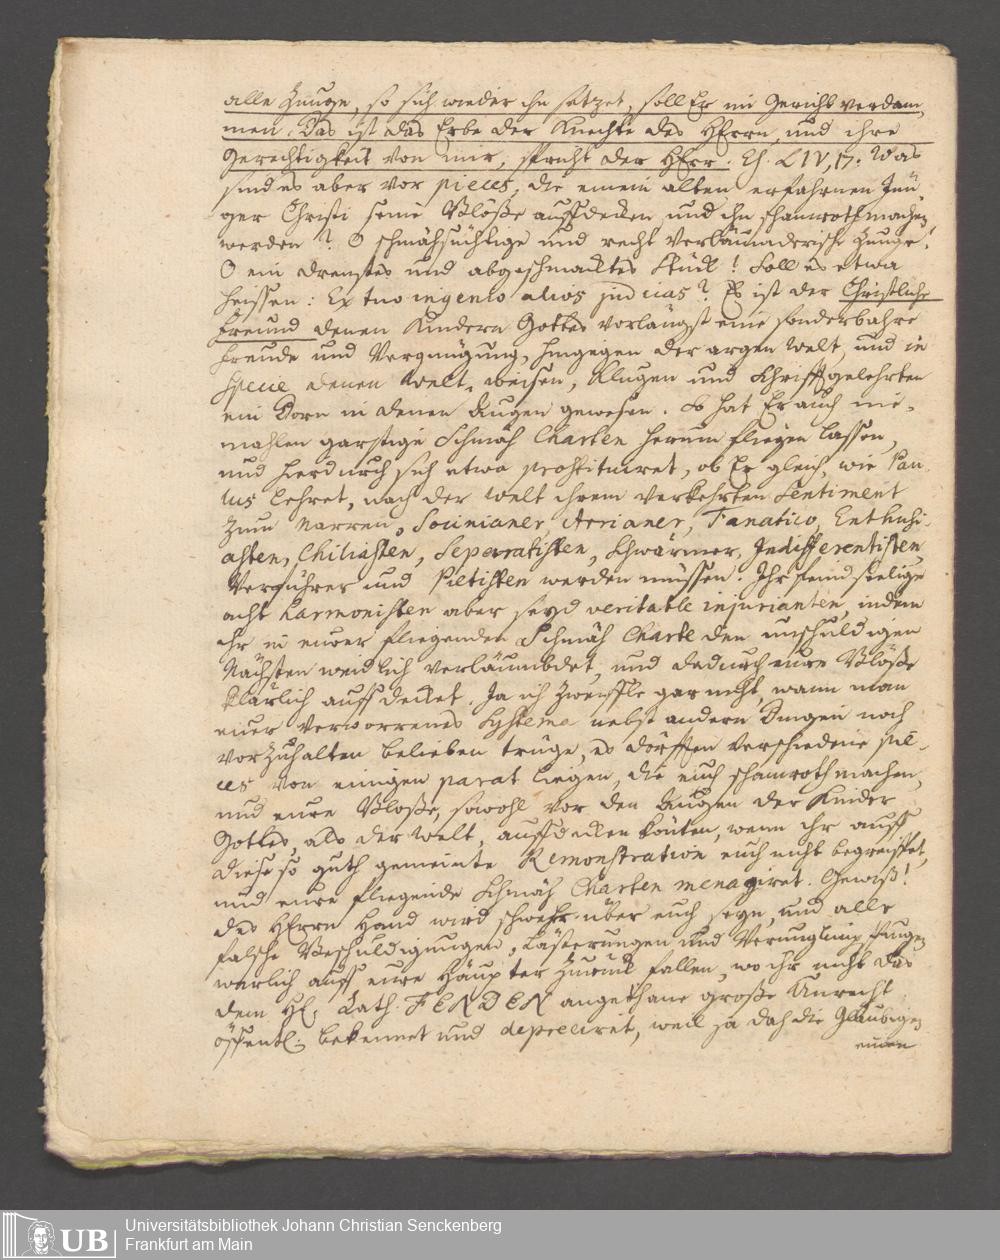 alle Zunge, so sich wieder ihn setzet, soll Er im Gericht verdam-
men. Das ist das Erbe der Knechte des HErrn, und ihre
Gerechtigkeit von mir, spricht der HErr. Es. LIV, 17. Was
sind es aber vor pieces, die einem alten erfahrnen Jün-
ger Christi seine Blöße auffdecken und ihn schamroth machen
werden? O schmähsüchtige und recht verläumderische Zunge!
O ein dreustes und abgeschmacktes Stück! Soll es etwa
heissen: Ex tuo ingenio alios judicas? Es ist der Christliche
Freund denen Kindern Gottes vorlängst eine sonderbahre
Freude und Vergnügung, hingegen der argen Welt, und in
specie denen Welt-weisen, Klugen und Schrifftgelehrten
ein Dorn in denen Augen gewesen. So hat Er auch nie-
mahlen garstige Schmäh Charten herum fliegen lassen,
und hierdurch sich etwa prostituiret, ob Er gleich, wie Pau-
lus lehret, nach der Welt ihrem verkehrten Sentiment
zum Narren, Socinianer, Arrianer, Fanatico, Enthusi-
asten, Chiliasten, Separatisten, Schwärmer, Indifferentisten
Verführer und Pietisten werden müssen. Ihr feindseelige
acht Harmonisten aber seyd veritable injurianten, indem
ihr in eurer fliegenden Schmäh Charte den unschuldigen
Nächsten weidlich verläumbdet, und dadurch eure Blöße
klärlich auffdecket. Ja ich zweiffle gar nicht, wann man
euer verworrenes Systema nebst andern Dingen noch
vorzuhalten belieben trüge, es dörfften verschiedene pie-
ces von einigen parat liegen, die euch schamroth machen,
und eure Blöße, sowohl vor den Augen der Kinder
Gottes, als der Welt, auffdecken könten, wenn ihr auff
diese so guth gemeinte Remonstration euch nicht begreiffet,
und eure fliegende Schmäh Charten menagiret. Gewiß!
des HErrn Hand wird schwehr über euch seyn, und alle
falsche Beschuldigungen, Lästerungen und Verunglimpffungen
warlich auff eure Häupter zurück fallen, wo ihr nicht das
dem H. Cath. FENDEN angethane große Unrecht
öffentl. bekennet und depreciret, weil ja doch die Gläubigen
euren
Universitätsbibliothek Johann Christian Senckenberg
Frankfurt am Main
UB